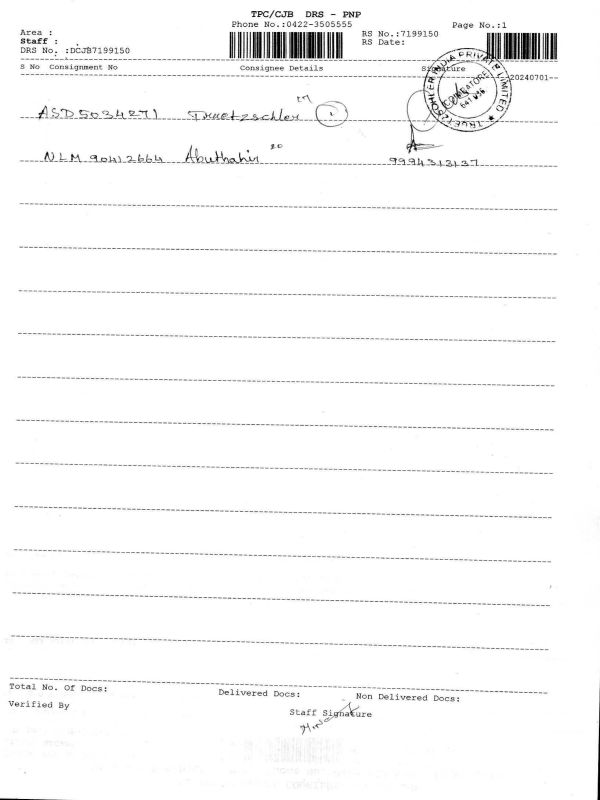 TPC/CJB DRS - PNP
Phone No.:0422-3505555
Page No.:1
Area :
RS No.:7199150
Staff :
RS Date:
DRS No. :DCJB7199150
S No Consignment No Consignee Details Signature
20240701
ASD5034271 Truetzschler 1
TRUETZSCHLER INDIA PRIVATE LIMITED
COIMBATORE
NLM 90412664 Abuthahir 20 9994313137
Total No. Of Docs: Delivered Docs: Non Delivered Docs:
Verified By
Staff Signature